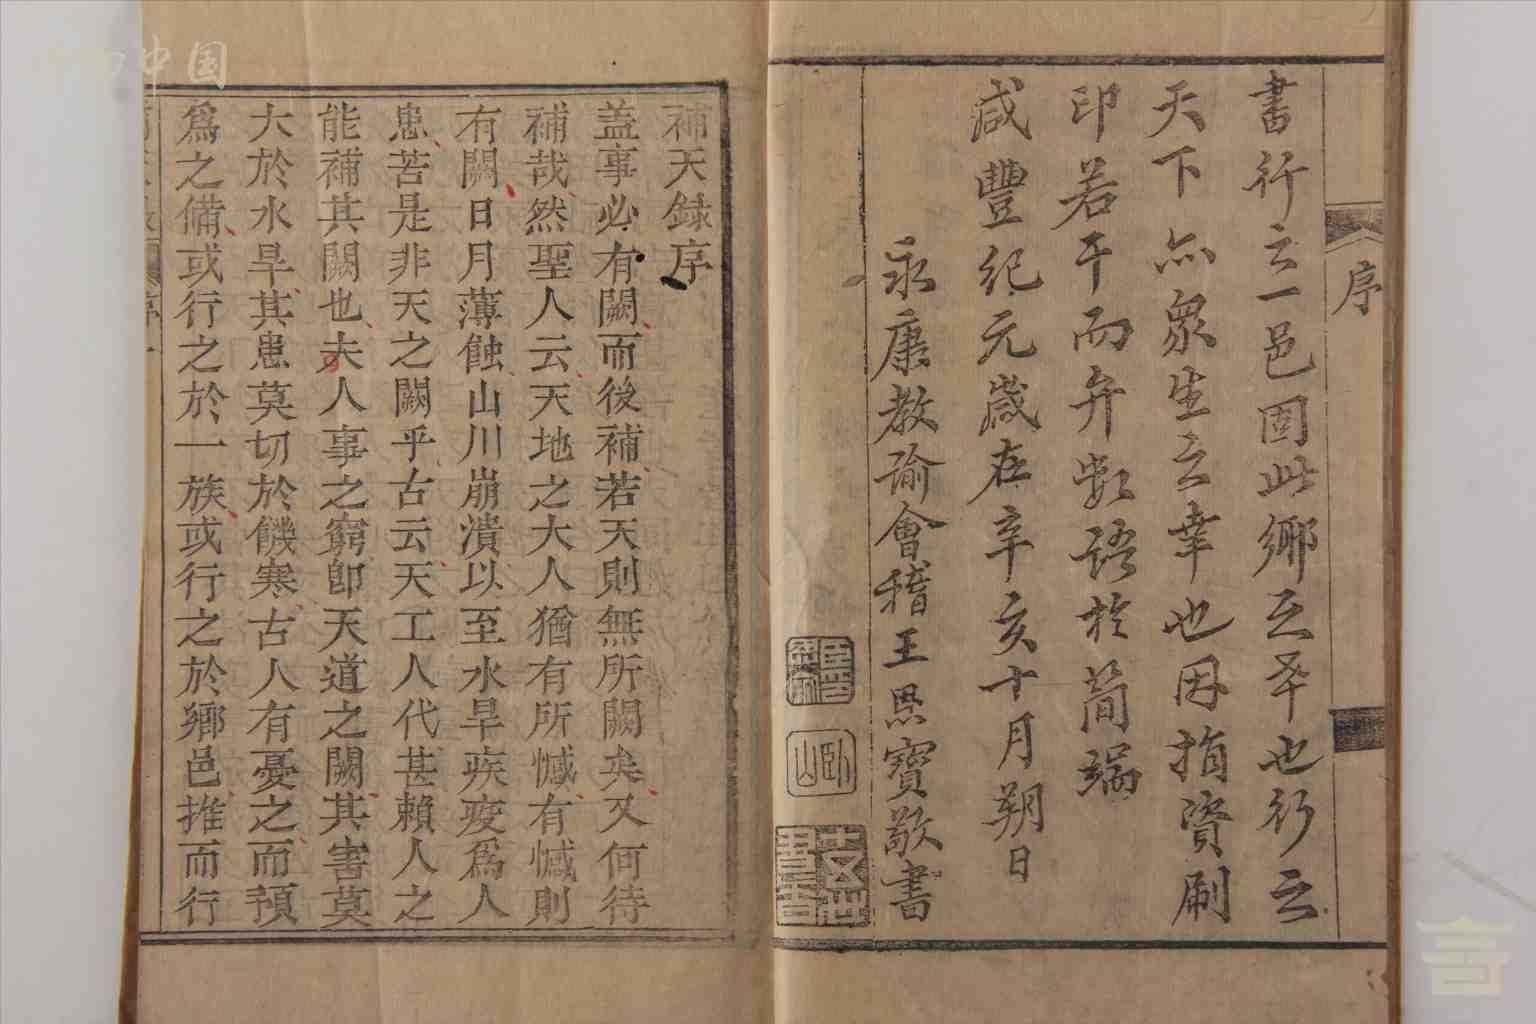 序
書行之一邑固此鄉之幸也行之
天下亦眾生之幸也因捐資刷
印若干而弁數語於簡端
咸豐紀元歲在辛亥十月朔日
永康教諭會稽王恩寶敬書
臥山
補天錄序
蓋事必有闕而後補若天則無所闕矣又何待
補哉然聖人云天地之大人猶有所憾有憾則
有闕日月薄蝕山川崩潰以至水旱疾疫為人
患苦是非天之闕乎古云天工人代甚賴人之
能補其闕也夫人事之窮即天道之闕其害莫
大於水旱其患莫切於饑寒古人有憂之而預
為之備或行之於一族或行之於鄉邑推而行
序一
中国